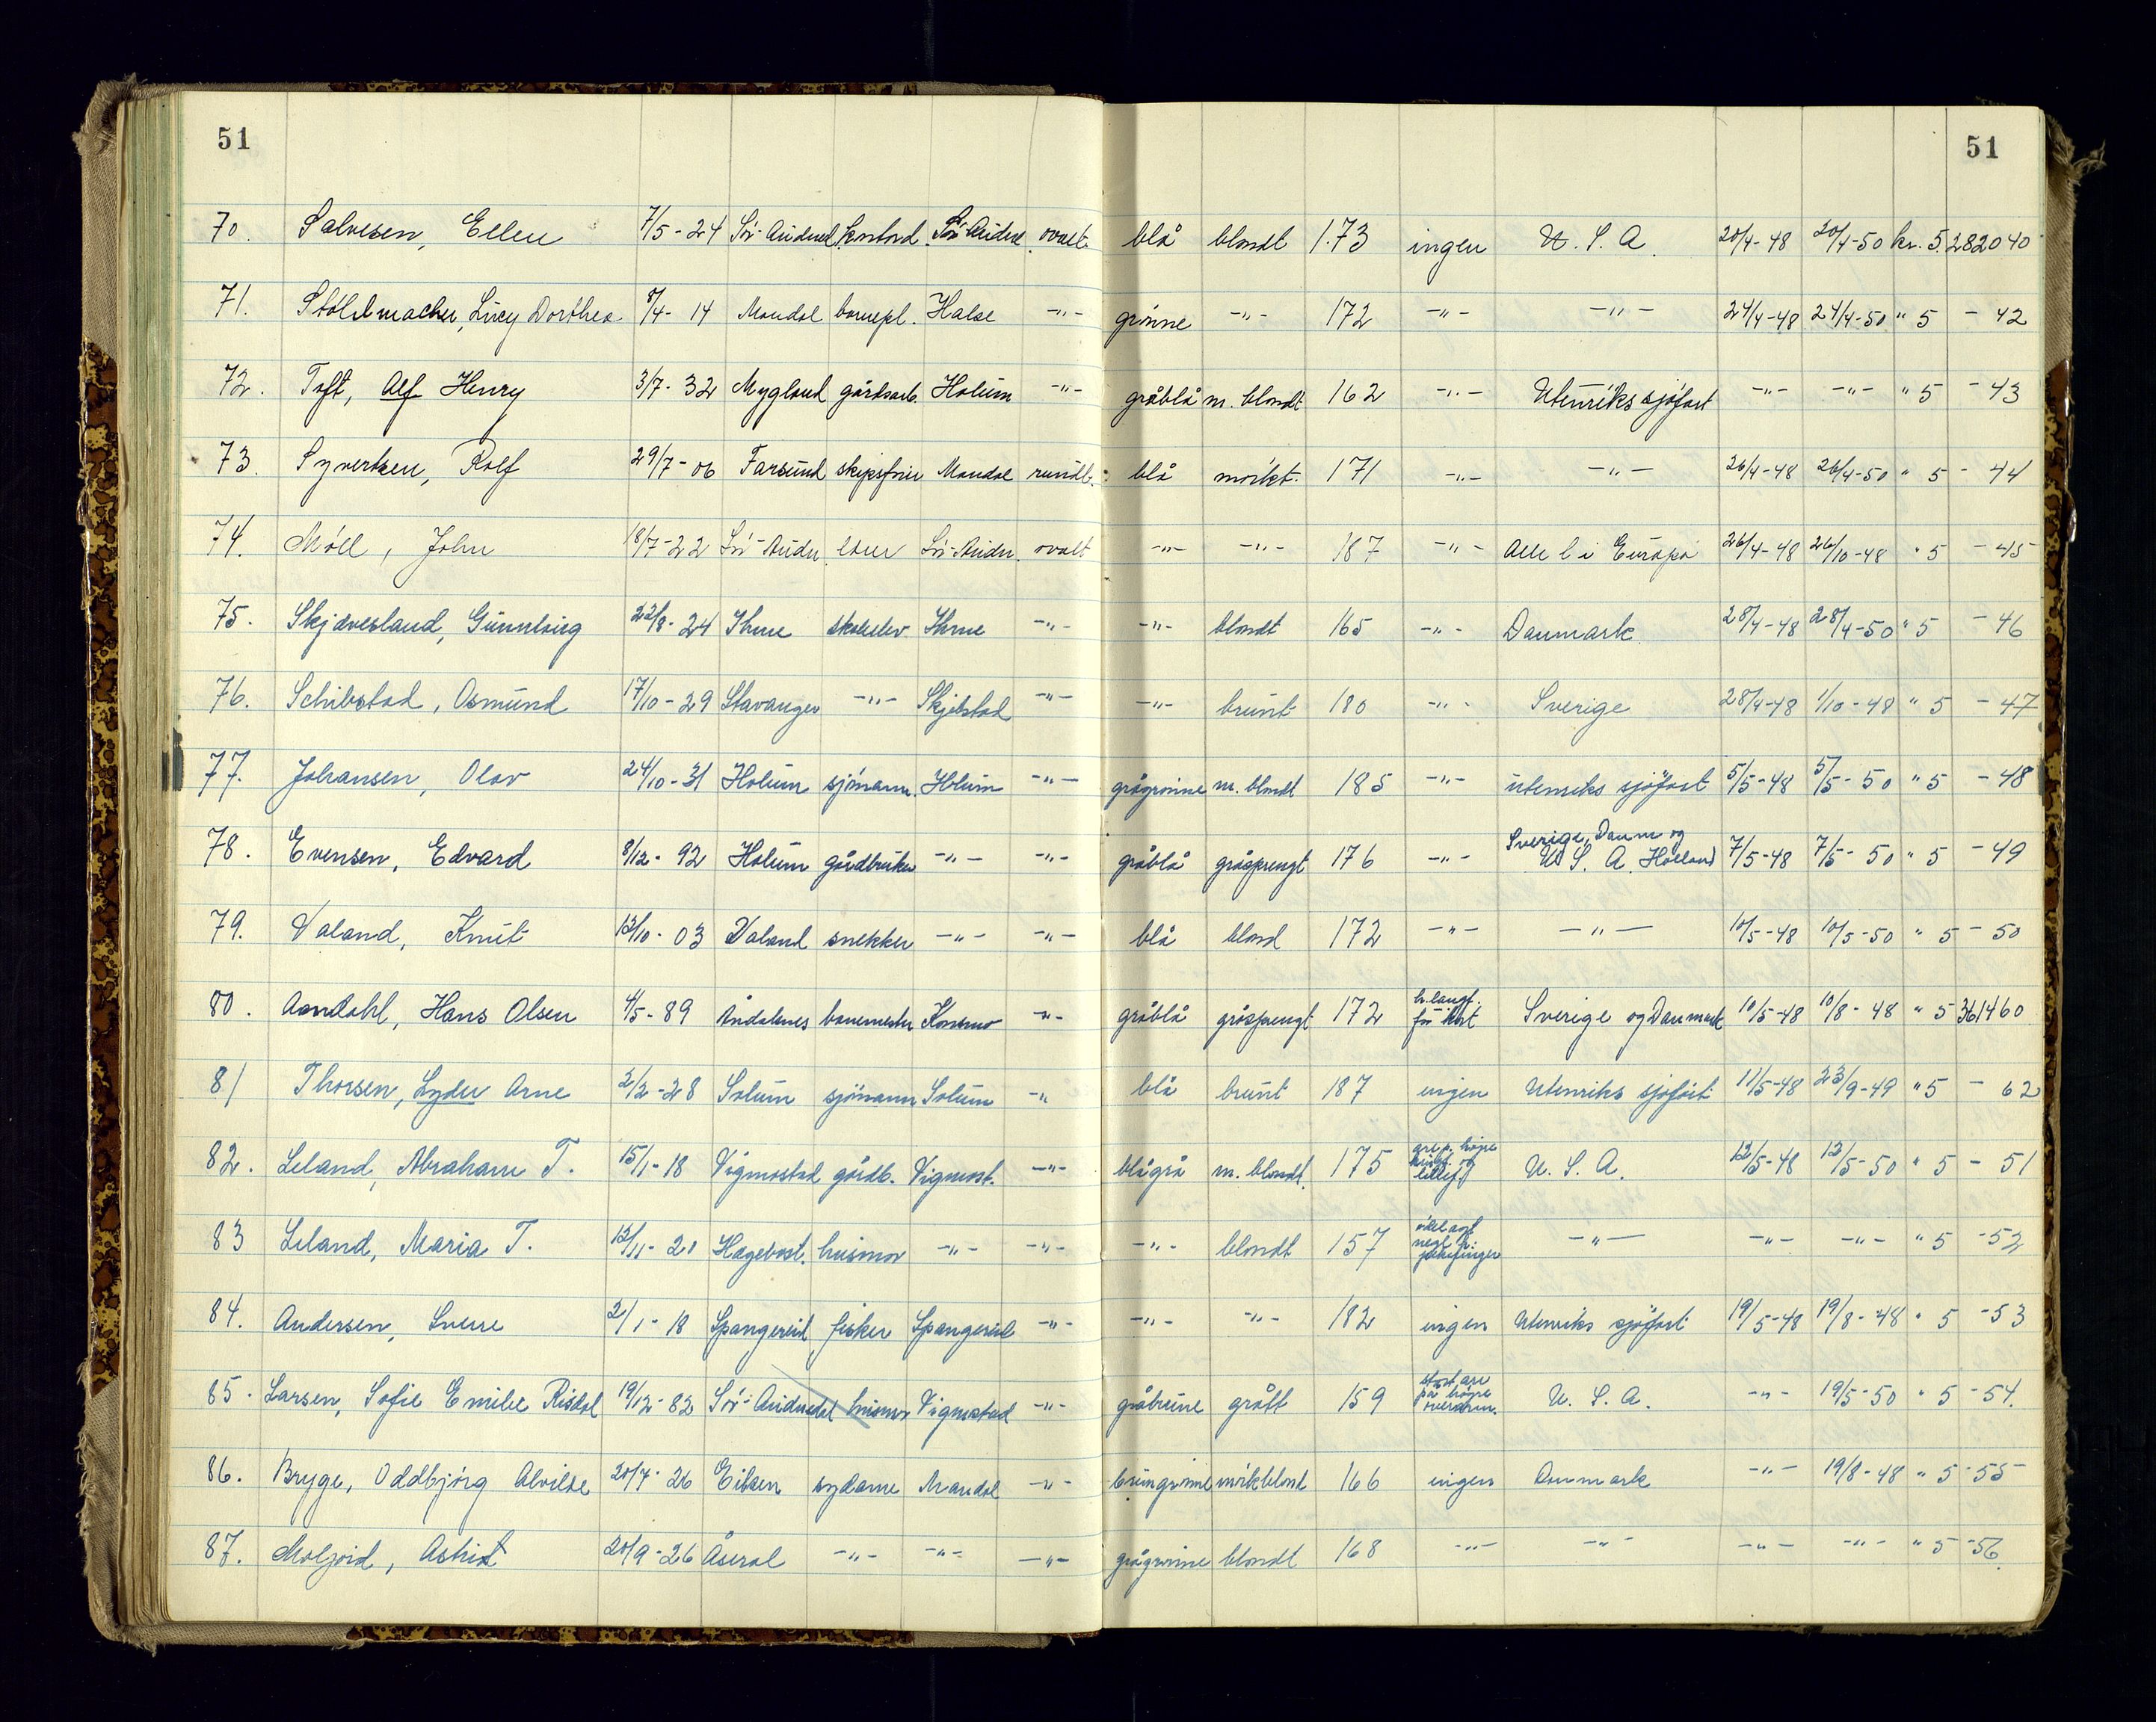 51 51
70. Salvesen, Ellen 7/5-24 Sör-Audnedal kontord. Sör-Audne. ovalt blå blondt 1.73 ingen U. S. A. 20/4-48 20/4-50 kr. 5. 282040
71. Stöldmacher, Lucy Dorthea 8/4-14 Mandal barnepl. Halse -"- grönne -"- 172 -"- -"- 24/4-48 24/4-50 " 5 - 42
72. Toft, Alf Henry 3/7-32 Mygland gårdsarb. Holum -"- gråblå m. blondt 162 -"- Utenriks sjöfart -"- -"- " 5 - 43
73. Syvertsen, Rolf 29/7-06 Farsund skipsförer Mandal rundt. blå mörkt. 171 -"- -"- 26/4-48 26/4-50 " 5 - 44
74. Möll, John 18/7-22 Sör-Audn. Sör-Audn. ovalt -"- -"- 187 -"- Alle l i Europa 26/4-48 26/10-48 " 5 - 45
75. Skjævesland, Gunnborg 22/8-24 Ihme skoleelev Ihme -"- -"- blondt 165 -"- Danmark. 28/4-48 28/4-50 " 5 - 46
76. Schibstad, Osmund 17/10-29 Stavanger -"- Skjebstad -"- -"- brunt 180 -"- Sverige 28/4-48 1/10-48 " 5 - 47
77. Johansen, Olav 24/10-31 Holum sjömann. Holum -"- grågrönne m. blondt 185 -"- utenriks sjöfart 5/5-48 5/5-50 " 5 - 48
78. Evensen, Edvard 8/12-92 Holum gårdbruker -"- -"- gråblå gråsprengt 176 -"- Sverige, Danm og U. S. A. Holland 7/5-48 7/5-50 " 5 - 49
79. Valand, Knut 12/10-03 Valand snekker -"- -"- blå blond 172 -"- -"- 10/5-48 10/5-50 " 5 - 50
80. Aandahl, Hans Olsen 4/5-89 Åndalsnes banemester Konsmo -"- gråblå gråsprengt 172 Sverige og Danmark 10/5-48 10/8-48 " 5 361460
81 Thorsen, Lyder Arne 2/2-28 Solum sjömann Solum -"- blå brunt 187 ingen Utenriks sjöfart 11/5-48 23/9-49 " 5 - 62
82. Leland, Abraham T. 15/1-18 Vigmostad gårdb. Vigmost. -"- blågrå m. blondt. 175 U. S. A. 12/5-48 12/5-50 " 5 - 51
83 Leland, Maria T. 12/11-20 Hægebost. husmor -"- -"- -"- blondt 157 -"- -"- -"- " 5 - 52
84. Andersen, Sverre 2/1-18 Spangereid fisker Spangereid -"- -"- -"- 182 ingen Utenriks sjöfart 19/5-48 19/8-48 " 5 - 53
85. Larsen, Sofie Emilie Risdal 19/12-82 Sör-Audnedal husmor Vigmostad -"- gråbrune grått 159 stort arr på höire overarm. U. S. A. -"- 19/5-50 " 5 - 54.
86. Bryge, Oddbjörg Alvilde 20/7-26 Eiken sydame Mandal -"- brungrönne mörkblond 166 ingen Danmark -"- 19/8-48 " 5 - 55
87. Moljord, Astrid 20/9-26 Åseral -"- -"- -"- grågrönne blondt 168 -"- -"- -"- -"- " 5 - 56.